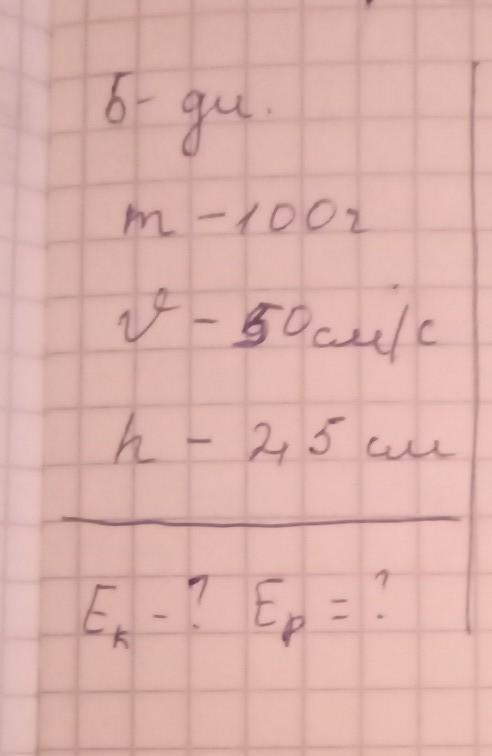 б- ди.
m - 100г
v - 50 см/с
h - 2,5 см
Eк - ? Eр = ?